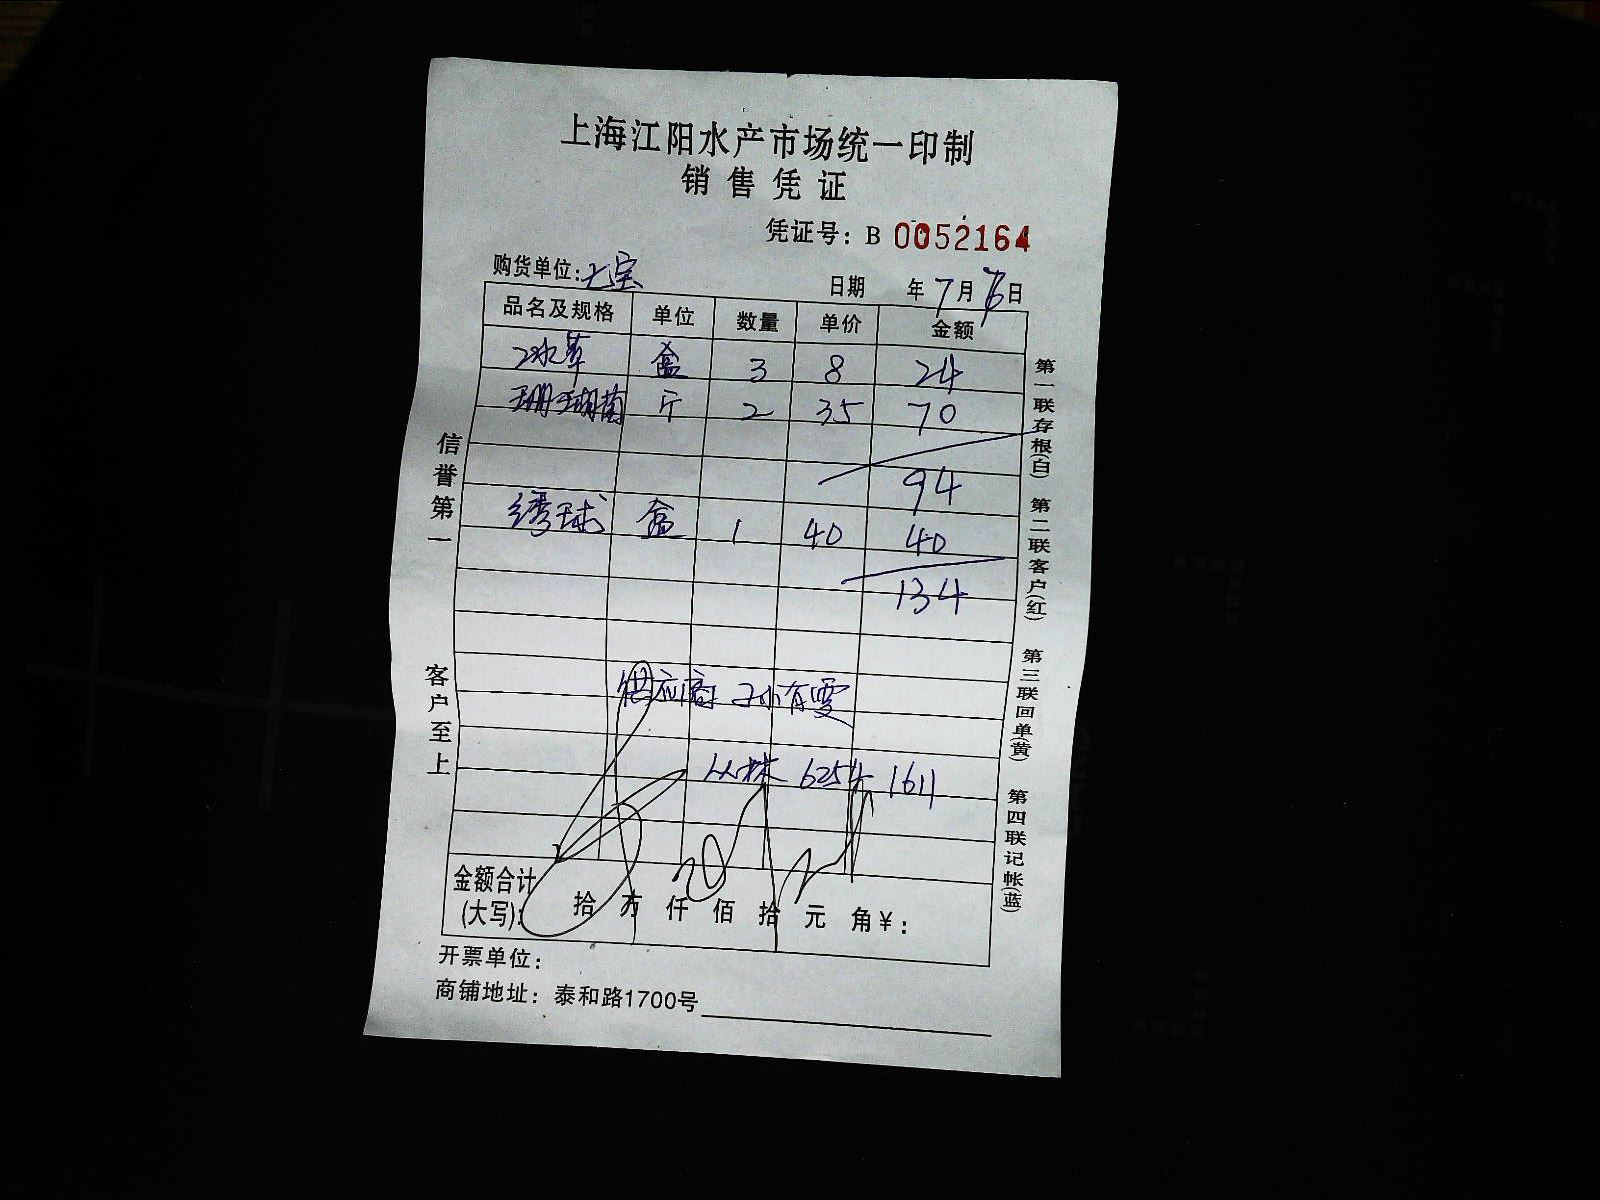 上海江阳水产市场统一印制
销售凭证
凭证号：B 0052164
购货单位：七宝 日期 年7月6日
品名及规格 单位 数量 单价 金额
冰草 盒 3 8 24
珊瑚菌 斤 2 35 70
94
绣球 盒 1 40 40
134
供应商 孙有雯
6254 1611
金额合计
(大写)： 拾 万 仟 佰 拾 元 角 ¥：
开票单位：
商铺地址：泰和路1700号
信誉第一
客户至上
第一联存根(白)
第二联客户(红)
第三联回单(黄)
第四联记帐(蓝)